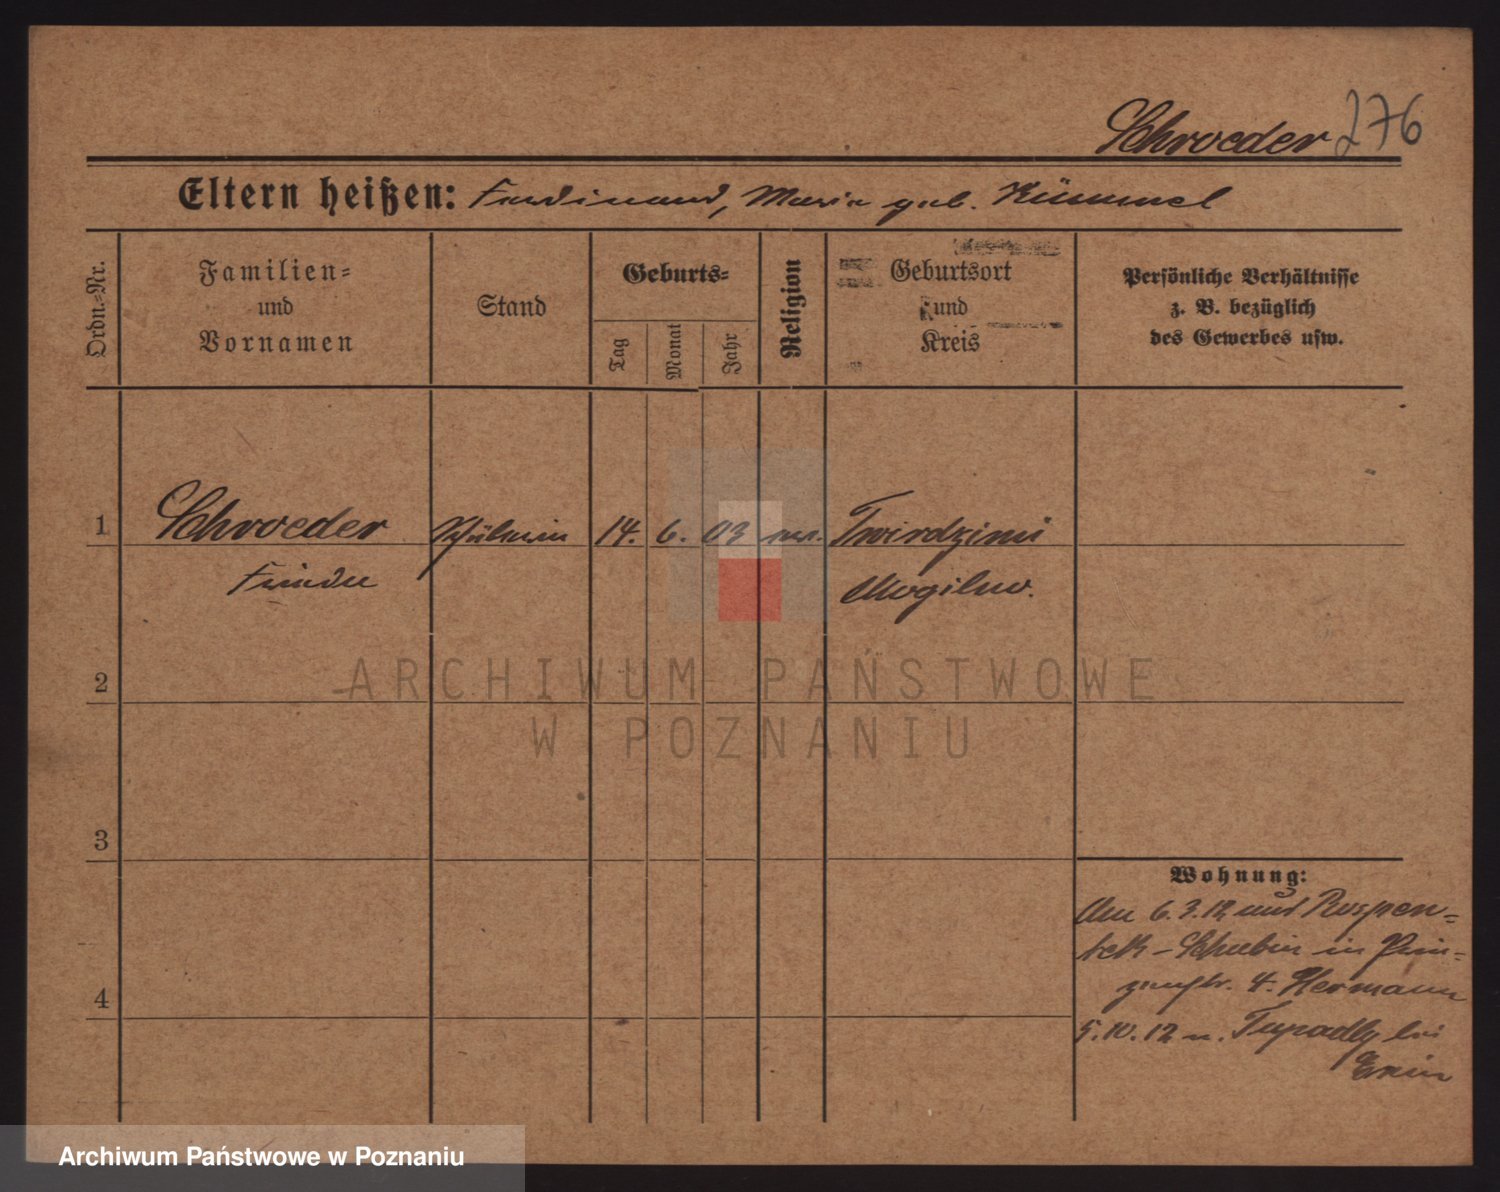 Schroeder 276
Eltern heißen: Ferdinand, Maria geb. Kümmel
Ordn.=Nr.
Familien=
und
Vornamen
Stand
Geburts=
Tag
Monat
Jahr
Religion
Geburtsort
und
Kreis
Persönliche Verhältnisse
z. B. bezüglich
des Gewerbes usw.
1 Schroeder Schülerin 14. 6. 03 ev. Twirdzimi
Frieda Mogilno.
2
3
4
ARCHIWUM PAŃSTWOWE
W POZNANIU
Wohnung:
6.3.12 aus Rospen=
tek - Schubin in Prin=
zenstr. 4. Hermann
5.10.12 n. Tupadly bei
Exin
Archiwum Państwowe w Poznaniu